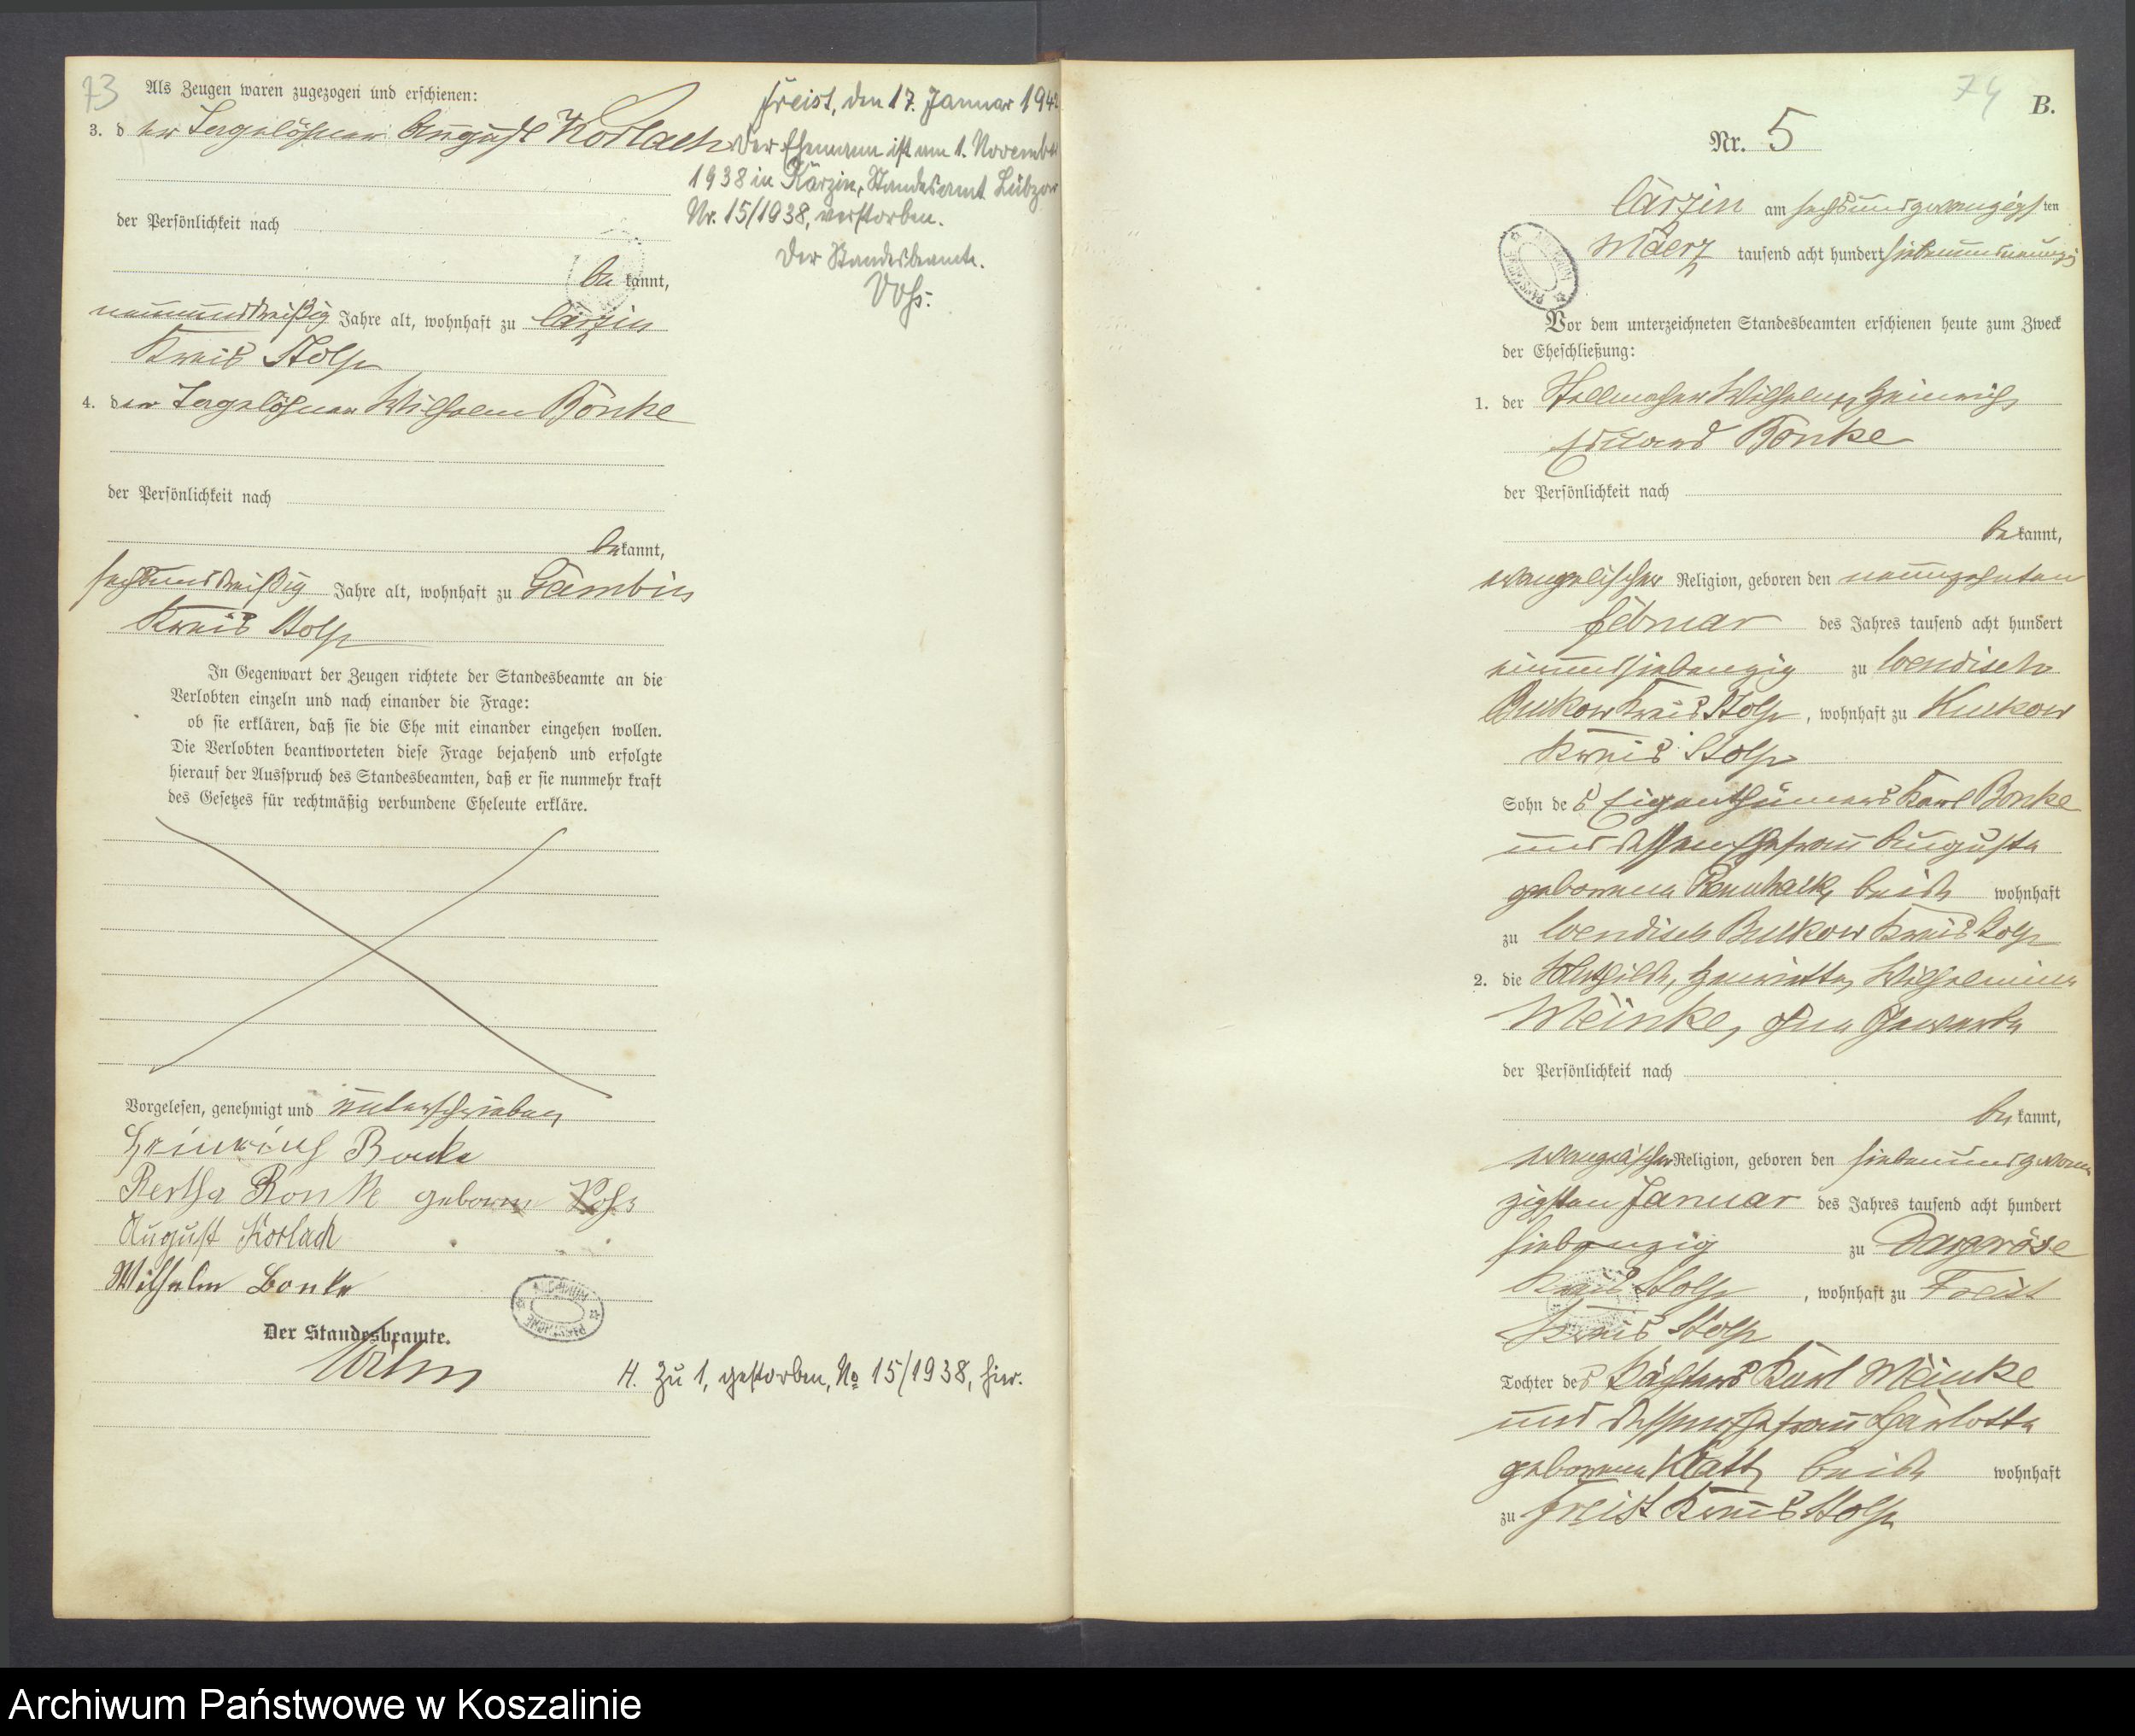 73
Als Zeugen waren zugezogen und erschienen:
3. der Tagelöhner August Korlach
der Persönlichkeit nach
bekannt,
neununddreißig Jahre alt, wohnhaft zu Carzin
Kreis Stolp
4. der Tagelöhner Wilhelm Bonke
der Persönlichkeit nach
bekannt,
sechsunddreißig Jahre alt, wohnhaft zu Gambin
Kreis Stolp
In Gegenwart der Zeugen richtete der Standesbeamte an die
Verlobten einzeln und nach einander die Frage:
ob sie erklären, daß sie die Ehe mit einander eingehen wollen.
Die Verlobten beantworteten diese Frage bejahend und erfolgte
hierauf der Ausspruch des Standesbeamten, daß er sie nunmehr kraft
des Gesetzes für rechtmäßig verbundene Eheleute erkläre.
Vorgelesen, genehmigt und unterschrieben
Heinrich Bonke
Bertha Bonke geborne Voß
August Korlach
Wilhelm Bonke
Der Standesbeamte.
Freist, den 17. Januar 194
Der Ehemann ist am 1. November
1938 in Karzin, Standesamt Lübzow
Nr. 15/1938, verstorben.
Der Standesbeamte.
Voß.
H. Zu 1, gestorben, No 15/1938, hier.
74
B.
Nr. 5
Carzin am sechsundzwanzigsten
Maerz tausend acht hundert siebenundneunzig
Vor dem unterzeichneten Standesbeamten erschienen heute zum Zweck
der Eheschließung:
1. der Stellmacher Wilhelm, Heinrich,
Eduard Bonke
der Persönlichkeit nach
bekannt,
evangelischer Religion, geboren den neunzehnten
Februar des Jahres tausend acht hundert
einundsiebenzig zu Wendisch
Bukow Kreis Stolp, wohnhaft zu Kukow
Kreis Stolp
Sohn des Eigenthümers Karl Bonke
und dessen Ehefrau Auguste
geborenen beide wohnhaft
zu Wendisch Bukow Kreis Stolp
2. die Mathilde, Henriette, Wilhelmine
Meinke, ohne Gewerbe
der Persönlichkeit nach
bekannt,
evangelischer Religion, geboren den siebenundzwan
zigsten Januar des Jahres tausend acht hundert
siebenzig zu Dargeröse
Kreis Stolp, wohnhaft zu Freist
Kreis Stolp
Tochter des Pächters Karl Meinke
und dessen Ehefrau Charlotte
geborenen Klatt, beide wohnhaft
zu Freist Kreis Stolp
Archiwum Państwowe w Koszalinie